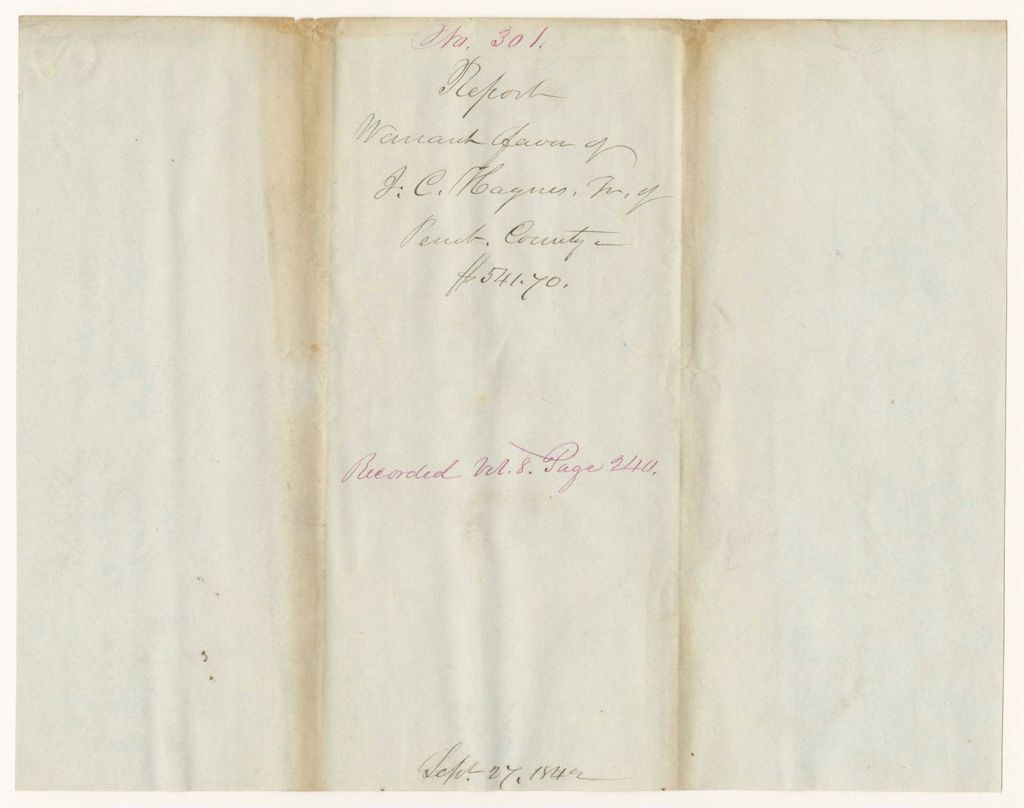 No. 301.
Report
Warrant favor of
J. C. Haynes, Tr. of
Penob. County -
$541.70.
Recorded Vol. 8. Page 240.
Sept. 27, 1842